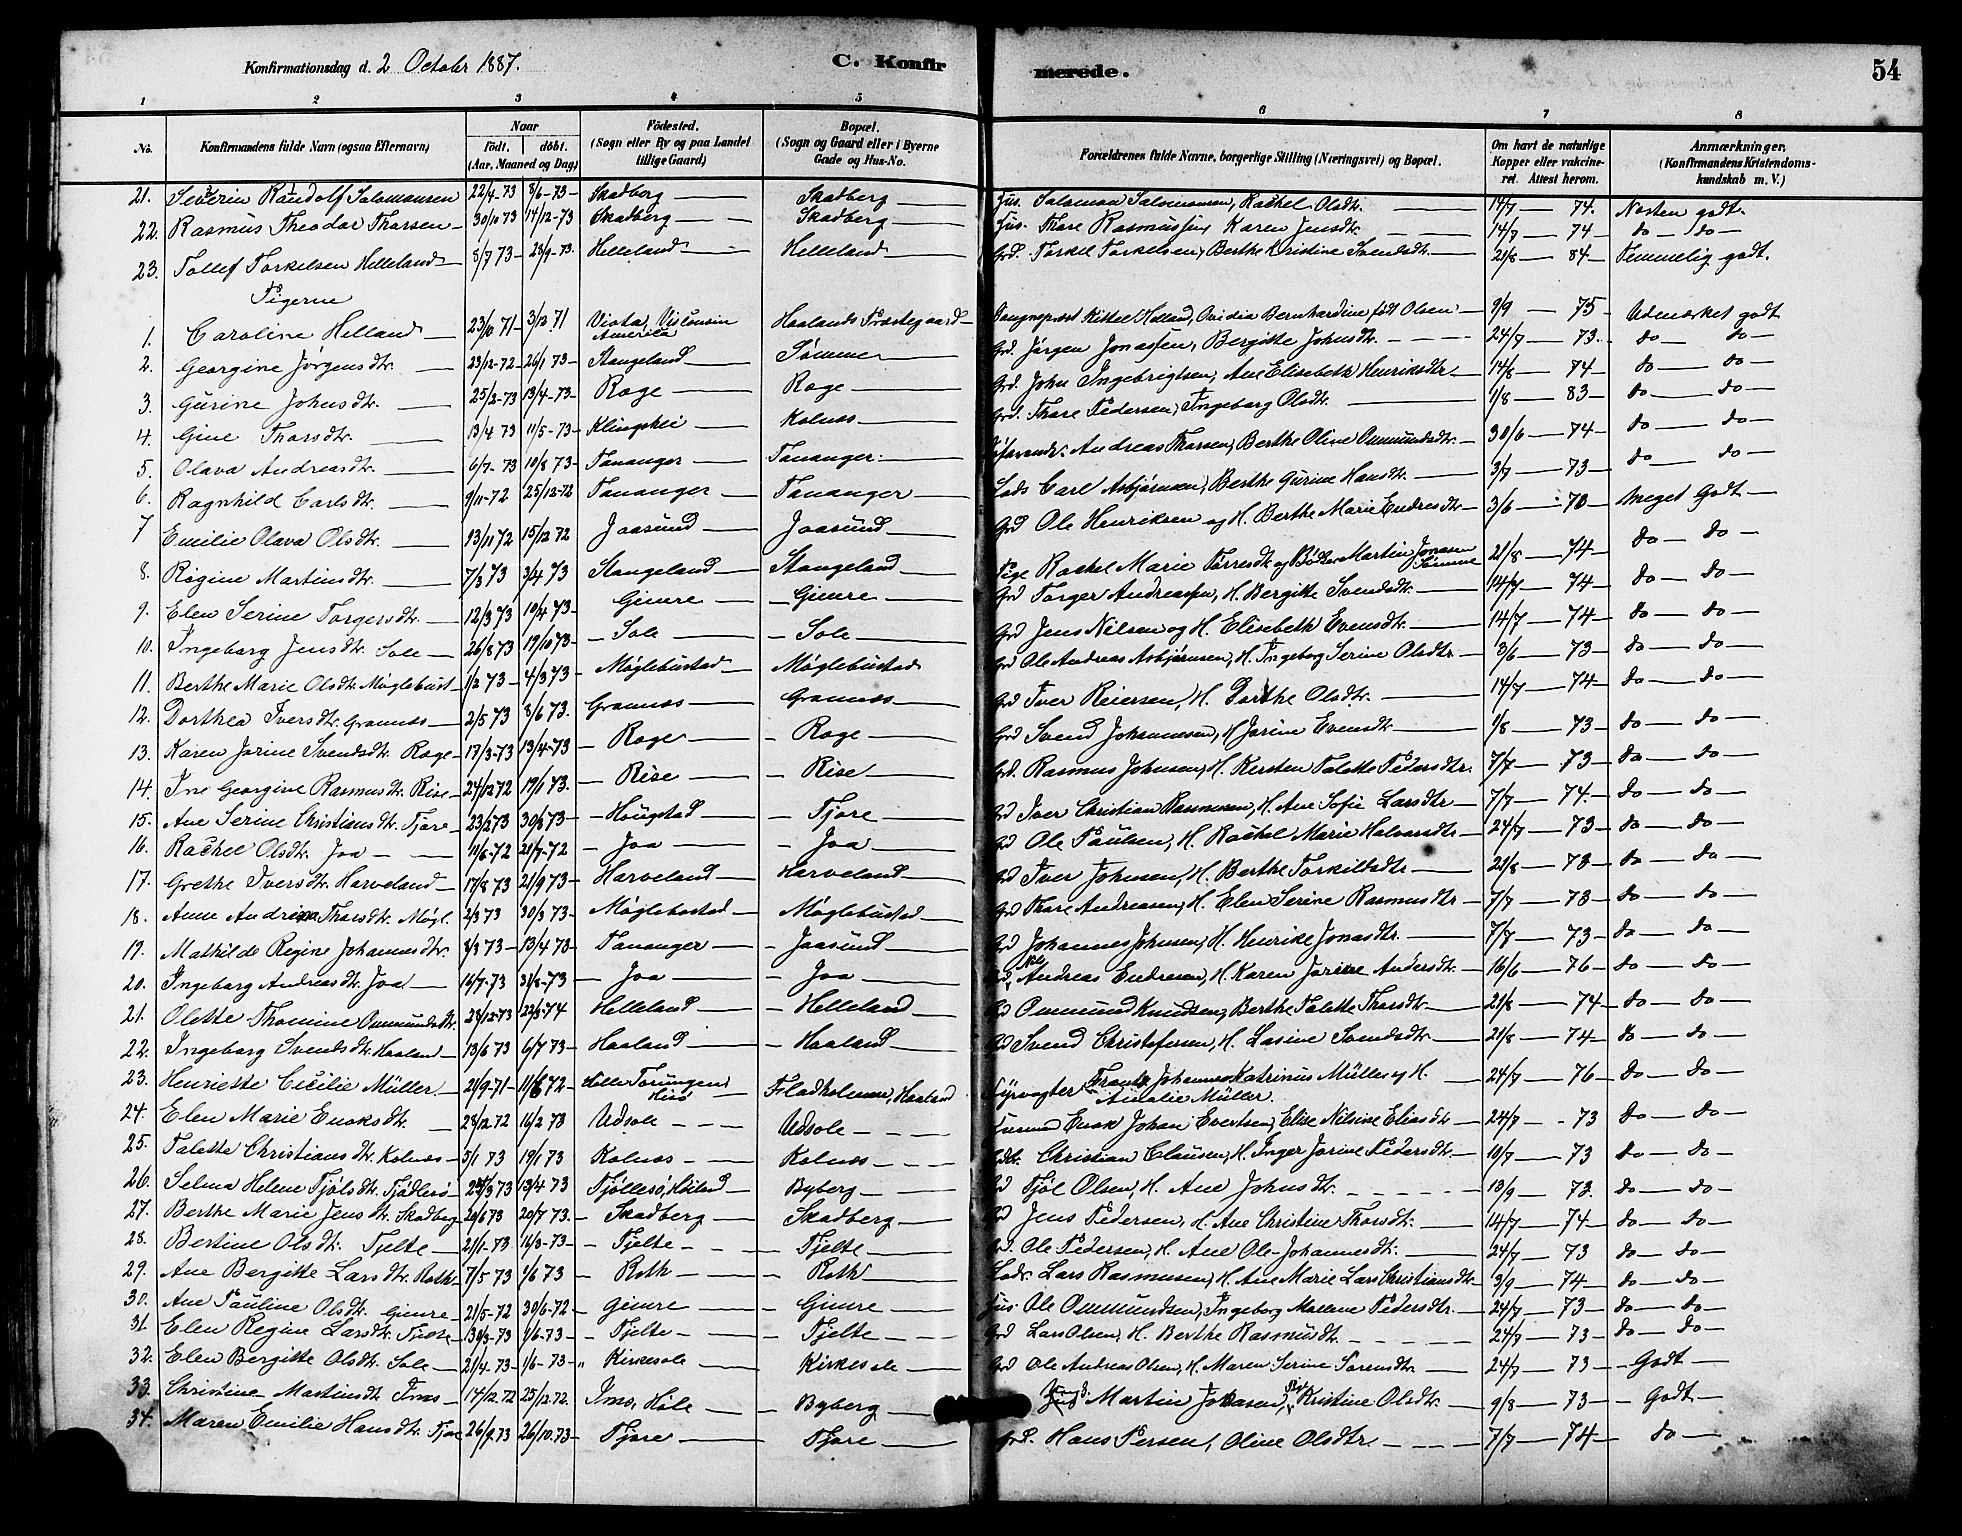 Konfirmationsdag d. 2 October 1887. C. Konfir merede. 54
1 2 3 4 5 6 7 8
No. Konfirmandens fulde Navn (ogsaa Efternavn) Naar født. døbt. (Aar, Maaned og Dag) Fødested. (Sogn eller By og paa Landet tillige Gaard) Bopæl. (Sogn og Gaard eller i Byerne Gade og Hus-No. Forældrenes fulde Navne, borgerlige Stilling (Næringsvei) og Bopæl. Om havt de naturlige Kopper eller vakcineret. Attest herom. Anmærkninger. (Konfirmandens Kristendomskundskab m. V.)
21. Severin Randolf Salomonsen 22/4-73 8/6-73 Skadberg Skadberg Hus. Salomon Salomonsen, Rachel Olsdt. 14/7 74. Næsten godt.
22. Rasmus Theodor Thorsen 30/10 73 14/12-73 Skadberg Skadberg Hus. Thore Rasmussen, Karen Jensdt. 14/7 74 do do
23. Tollef Torkelsen Helleland 8/7 73 28/9-73 Helleland Helleland Grd. Torkel Torkelsen, Berthe Kristine Svendsdt. 21/8 84 Temmelig godt.
Pigerne
1. Caroline Helland 23/10 71 3/12 71 Viota, Visconsin America Haalands Præstegaard Sougneprest Kittel Helland, Ovidia Bernhardine født Olsen 9/9 75 Udmærket godt
2. Georgine Jørgensdtr. 23/12-72 26/1 73 Stangeland Sømme Grd. Jørgen Jonassen, Bergitte Johnsdt. 24/7 73. do do
3. Gurine Johnsdtr. 25/2-73 13/4-73 Roge Roge Grd. John Ingebrigtsen, Ane Elisebeth Henriksdtr 14/8 74 do do
4. Gine Thorsdtr. 13/4 73 11/5-73 Klingshei Kolnæs Grd. Thore Pedersen, Ingeborg Olsdt. 1/8 83 do do
5. Olava Andreasdtr. 6/7-73 10/8 73 Tananger Tananger. Andreas Thorsen, Berthe Oline Ommundsdt. 30/6 74 do do
6. Ragnhild Carlsdt. 9/11-72 25/12-72 Tananger Tananger Lods Carl Asbjørnsen, Berthe Gurine Hansdt. 3/7 73 do do
7 Emilie Olava Olsdtr. 13/11 72 15/12 72 Jaasund Jaasund Grd Ole Henriksen og H. Berthe Marie Endresdtr 3/6 73 Meget Godt
8. Regine Martinsdtr. 7/3 73 3/4 73 Stangeland Stangeland Pige Rachel Marie Torresdt og Bødker Martin Jonasen Sømme 21/8 74 do do
9. Elen Serine Torgersdtr. 12/3 73 10/4 73 Gimre Gimre Grd Torger Andreassen, H. Bergitte Svendsdt. 14/7 74 do do
10. Ingeborg Jensdtr. Sole 26/8 73 19/10 73 Sole Sole Grd Jens Nilsen og H. Elisebeth Evensdt. 14/7 74 do do
11. Berthe Marie Olsdt. Møglebust 1/2 73 4/3 73 Møglebustad Møglebustad Grd Ole Andreas Asbjørnsen, H. Ingeborg Serine Olsdtr 3/6 73 do do
12. Dorthea Iversdt. Grannes 2/5 73 8/6 73. Grannes Grannes Grd Iver Reiersen, H. Dorthe Olsdt. 14/7 74 do do
13. Karen Jorine Svendsdt. Roge 17/3-73 13/4-73 Roge Roge Grd Svend Johannesen, H Jorine Evensdt. 1/8 73 do do
14. Ine Georgine Rasmusdt. Rise 24/12 72 19/1 73. Rise Rise Grd. Rasmus Johnsen, H. Kersten Talette Pedersdtr. 7/7 73 do do
15. Ane Serine Christiansdt. Tjore 23/2 73 30/3 73 Hougstad Tjore Grd Iver Christian Rasmusen, H. Ane Sofie Larsdtr 7/7 74. do do
16. Rachel Olsdt. Joa 11/6-72 21/7-72 Joa Joa Grd Ole Paulsen, H. Rachel Marie Halvorsdtr 24/7 73 do do
17. Grethe Iversdtr. Harveland 17/8 73 21/9 73 Harveland Harveland Grd Iver Johnsen, H. Berthe Torkildsdt 21/8 73 do do
18. Anne Andrea Thorsdtr. Møgl. 2/3 73 30/3 73 Møglebostad Møglebustad Grd Thore Andreasen, H. Elen Serine Rasmusdtr 7/7 73 do do
19. Mathilde Regine Johannesdtr. 8/3 73 13/4 73 Tananger Jaasund Grd Johannes Johnsen, H. Henrike Jonasdtr. 7/7 73 do do
20. Ingeborg Andreasdt. Joa 16/7-73 31/8-73 Joa Joa Andreas Endresen, H. Karen Jorine Andersdt. 16/6 76 do do
21. Olette Thomine Ommundsdtr. 28/12-73 22/3-74 Helleland Helleland Grd Ommund Knudsen, Berthe Talette Thorsdt. 21/8 74 do do
22. Ingeborg Svendsdt. Haaland 13/6 73 6/7 73 Haaland Haaland Grd Svend Christofersen, H. Lasine Svendsdt. 21/8 74 do do
23. Henriette Cicilie Müller. 21/9-71 11/6 72 Helle Torungen Hisø Fladholmen, Haaland Fyrvogter Frantz Johannes Katrinus Müller og H. Amalie Müller. 24/7 76 do do
24. Elen Marie Enoksdt. 28/12 72 16/2 73 Udsole Udsole Enok Johan Evertsen, Elise Nilsine Eliasdtr 24/7 73 do do
25. Talette Christiansdt. Kolnæs 5/1 73 19/1 73 Kolnæs Kolnæs Christian Clausen, H. Inger Jorine Pedersdt. 10/7 73 do do
26. Selma Helene Tjølsdt. Tjødlerø 23/3 73 13/4 73 Tjøllerø, Høiland Byberg Grd Tjøl Olsen, H. Ane Johnsdt. 13/9 73. do do
27. Berthe Marie Jensdt. Skadberg 20/6 73 20/7 73. Skadberg Skadberg Grd Jens Pedersen, H. Ane Christine Thorsdt. 14/7 74 do do
28. Bertine Olsdt. Tjelte 21/1-73 16/3-73 Tjelte Tjelte Grd. Ole Pedersen, H. Ane Ole-Johannesdt. 24/7 73 do do
29. Ane Bergitte Larsdt. Roth 7/5 73 1/6 73 Roth Roth Lars Rasmusen, H. Ane Marie Lars Christiansdt. 3/9 74 do do
30. Ane Pauline Olsdt. Gimre 21/5-72 30/6-72 Gimre Gimre Hus. Ole Ommundsen, Ingeborg Mallene Pedersdtr. 24/7 73 do do
31. Elen Regine Larsdt. Tjelte 30/3-73 1/6-73 Tjelte Tjelte Grd Lars Olsen, H. Berthe Rasmusdt. 24/7 73 do do
32. Elen Bergitte Olsdt. Sole 21/4-73 1/6-73 Kirkesole Kirkesole Grd Ole Andreas Olsen, H. Maren Serine Sørensdt. 24/7 73 Godt
33. Christine Martinsdt. Ims 14/12.72 25/12.72. Ims, Høle Byberg Hus. Martin Johnsen, Kristine Olsdt. 9/8 73 Godt
34. Maren Emilie Hansdtr. Tjore 26/9.73 26/10.73 Tjore Tjore Grd. Hans Persen, Oline Olsdtr. 7/7 74 do